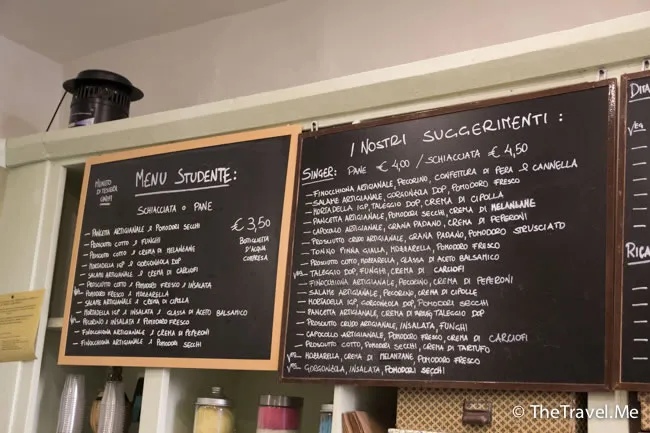 MENU STUDENTE:
MUNITO
DI TESSERA
SCHIACCIATA O PANE
€ 3,50
BOTTIGLIETTA
D'ACQUA
COMPRESA
- PANCETTA ARTIGIANALE E POMODORI SECCHI
- PROSCIUTTO COTTO E FUNGHI
- PROSCIUTTO COTTO E CREMA DI MELANZANE
- MORTADELLA IGP E GORGONZOLA DOP
- SALAME ARTIGIANALE E CREMA DI CARCIOFI
- PROSCIUTTO COTTO E POMODORO FRESCO E INSALATA
- POMODORO FRESCO E MOZZARELLA
- SALAME ARTIGIANALE E CREMA DI CIPOLLA
- MORTADELLA IGP E INSALATA E GLASSA DI ACETO BALSAMICO
- PECORINO E INSALATA E POMODORO FRESCO
- FINOCCHIONA ARTIGIANALE E CREMA DI PEPERONI
- FINOCCHIONA ARTIGIANALE E POMODORI SECCHI
I NOSTRI SUGGERIMENTI:
SINGER: PANE € 4,00 / SCHIACCIATA € 4,50
- FINOCCHIONA ARTIGIANALE, PECORINO, CONFETTURA DI PERA E CANNELLA
- SALAME ARTIGIANALE, GORGONZOLA DOP, POMODORO FRESCO
- MORTADELLA IGP, TALEGGIO DOP, CREMA DI CIPOLLA
- PANCETTA ARTIGIANALE, POMODORI SECCHI, CREMA DI MELANZANE
- CAPOCOLLO ARTIGIANALE, GRANA PADANO, CREMA DI PEPERONI
- PROSCIUTTO CRUDO ARTIGIANALE, GRANA PADANO, POMODORO STRUSCIATO
- TONNO PINNA GIALLA, MOZZARELLA, POMODORO FRESCO
- PROSCIUTTO COTTO, MOZZARELLA, GLASSA DI ACETO BALSAMICO
- TALEGGIO DOP, FUNGHI, CREMA DI CARCIOFI
- FINOCCHIONA ARTIGIANALE, PECORINO, CREMA DI PEPERONI
- SALAME ARTIGIANALE, PECORINO, CREMA DI CIPOLLE
- MORTADELLA IGP, GORGONZOLA DOP, POMODORI SECCHI
- PANCETTA ARTIGIANALE, CREMA DI TALEGGIO DOP
- PROSCIUTTO CRUDO ARTIGIANALE, INSALATA, FUNGHI
- CAPOCOLLO ARTIGIANALE, POMODORO FRESCO, CREMA DI CARCIOFI
- PROSCIUTTO COTTO, POMODORI SECCHI, CREMA DI TARTUFO
- MOZZARELLA, CREMA DI MELANZANE, POMODORO FRESCO
- GORGONZOLA, INSALATA, POMODORI SECCHI
© TheTravel.Me